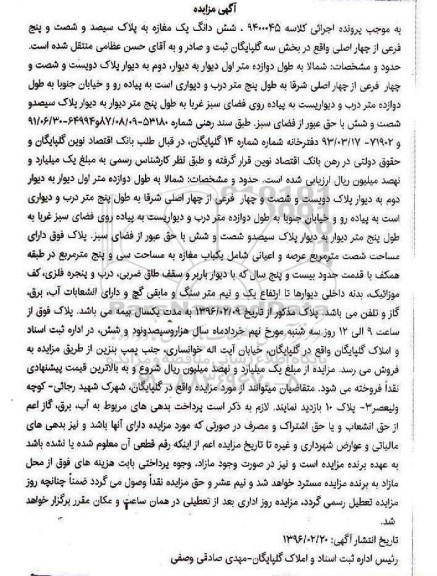 آگهی مزایده
به موجب پرونده اجرائی کلاسه ۹۴۰۰۰۴۵ ، شش دانگ یک مغازه به پلاک سیصد و شصت و پنج
فرعی از چهار اصلی واقع در بخش سه گلپایگان ثبت و صادر و به آقای حسن عظامی منتقل شده است.
حدود و مشخصات: شمالا به طول دوازده متر اول دیوار به دیوار، دوم به دیوار پلاک دویست و شصت و
چهار فرعی از چهار اصلی شرقا به طول پنج متر درب و دیواری است به پیاده رو و خیابان جنوبا به طول
دوازده متر درب و دیواریست به پیاده روی فضای سبز غربا به طول پنج متر دیوار به دیوار پلاک سیصدو
شصت و شش با حق عبور از فضای سبز. طبق سند رهنی شماره ۵۳۱۸۰-۸۷/۰۸/۰۹و۶۴۹۹۴-۹۱/۰۶/۳۰
و۷۱۹۰۲- ۹۳/۰۳/۱۷ دفترخانه شماره شماره ۱۴ گلپایگان، در قبال طلب بانک اقتصاد نوین گلپایگان و
حقوق دولتی در رهن بانک اقتصاد نوین قرار گرفته و طبق نظر کارشناس رسمی به مبلغ یک میلیارد و
نهصد میلیون ریال ارزیابی شده است. حدود و مشخصات: شمالا به طول دوازده متر اول دیوار به دیوار
دوم به دیوار پلاک دویست و شصت و چهار فرعی از چهار اصلی شرقا به طول پنج متر درب و دیواری
است به پیاده رو و خیابان جنوبا به طول دوازده متر درب و دیواریست به پیاده روی فضای سبز غربا به
طول پنج متر دیوار به دیوار پلاک سیصدو شصت و شش با حق عبور از فضای سبز. پلاک فوق دارای
مساحت شصت مترمربع عرصه و اعیانی شامل یکباب مغازه به مساحت سی و پنج مترمربع در طبقه
همکف با قدمت حدود بیست و پنج سال که با دیوار باربر و سقف طاق ضربی، درب و پنجره فلزی، کف
موزائیک، بدنه داخلی دیوارها تا ارتفاع یک و نیم متر سنگ و مابقی گچ و دارای انشعابات آب، برق،
گاز و تلفن می باشد. پلاک مذکور از تاریخ ۱۳۹۶/۰۲/۰۹ به مدت یکسال بیمه می باشد. پلاک فوق از
ساعت ۹ الی ۱۲ روز سه شنبه مورخ نهم خردادماه سال هزاروسیصدونود و شش، در اداره ثبت اسناد
و املاک گلپایگان واقع در گلپایگان، خیابان آیت اله خوانساری، جنب پمپ بنزین از طریق مزایده به
فروش می رسد. مزایده از مبلغ یک میلیارد و نهصد میلیون ریال شروع و به بالاترین قیمت پیشنهادی
نقداً فروخته می شود. متقاضیان میتوانند از مورد مزایده واقع در گلپایگان، شهرک شهید رجائی- کوچه
ولیعصر۳- پلاک ۱۰ بازدید نمایند. لازم به ذکر است پرداخت بدهی های مربوط به آب، برق، گاز اعم
از حق انشعاب و یا حق اشتراک و مصرف در صورتی که مورد مزایده دارای آنها باشد و نیز بدهی های
مالیاتی و عوارض شهرداری و غیره تا تاریخ مزایده اعم از اینکه رقم قطعی آن معلوم شده یا نشده باشد
به عهده برنده مزایده است و نیز در صورت وجود مازاد، وجوه پرداختی بابت هزینه های فوق از محل
مازاد به برنده مزایده مسترد خواهد شد و نیم عشر و حق مزایده نقداً وصول می گردد ضمناً چنانچه روز
مزایده تعطیل رسمی گردد، مزایده روز اداری بعد از تعطیلی در همان ساعت و مکان مقرر برگزار خواهد
شد.
تاریخ انتشار آگهی: ۱۳۹۶/۰۲/۲۰
رئیس اداره ثبت اسناد و املاک گلپایگان-مهدی صادقی وصفی